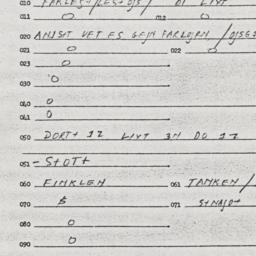 010 FARLEST/LEST OJS/ DI LIVT
011 O 012 O
020 ANISHT VET ES GEJN FARLOJRN /OJSGE
021 O 022 O
023 O
030 O
040 O
041 O
050 DORT+ 12 LIVT 3N DO 12
051 - STOT+
060 FINKLEN 061 TANKEN/
070 B 071 STNAJDT
080 O
090 O